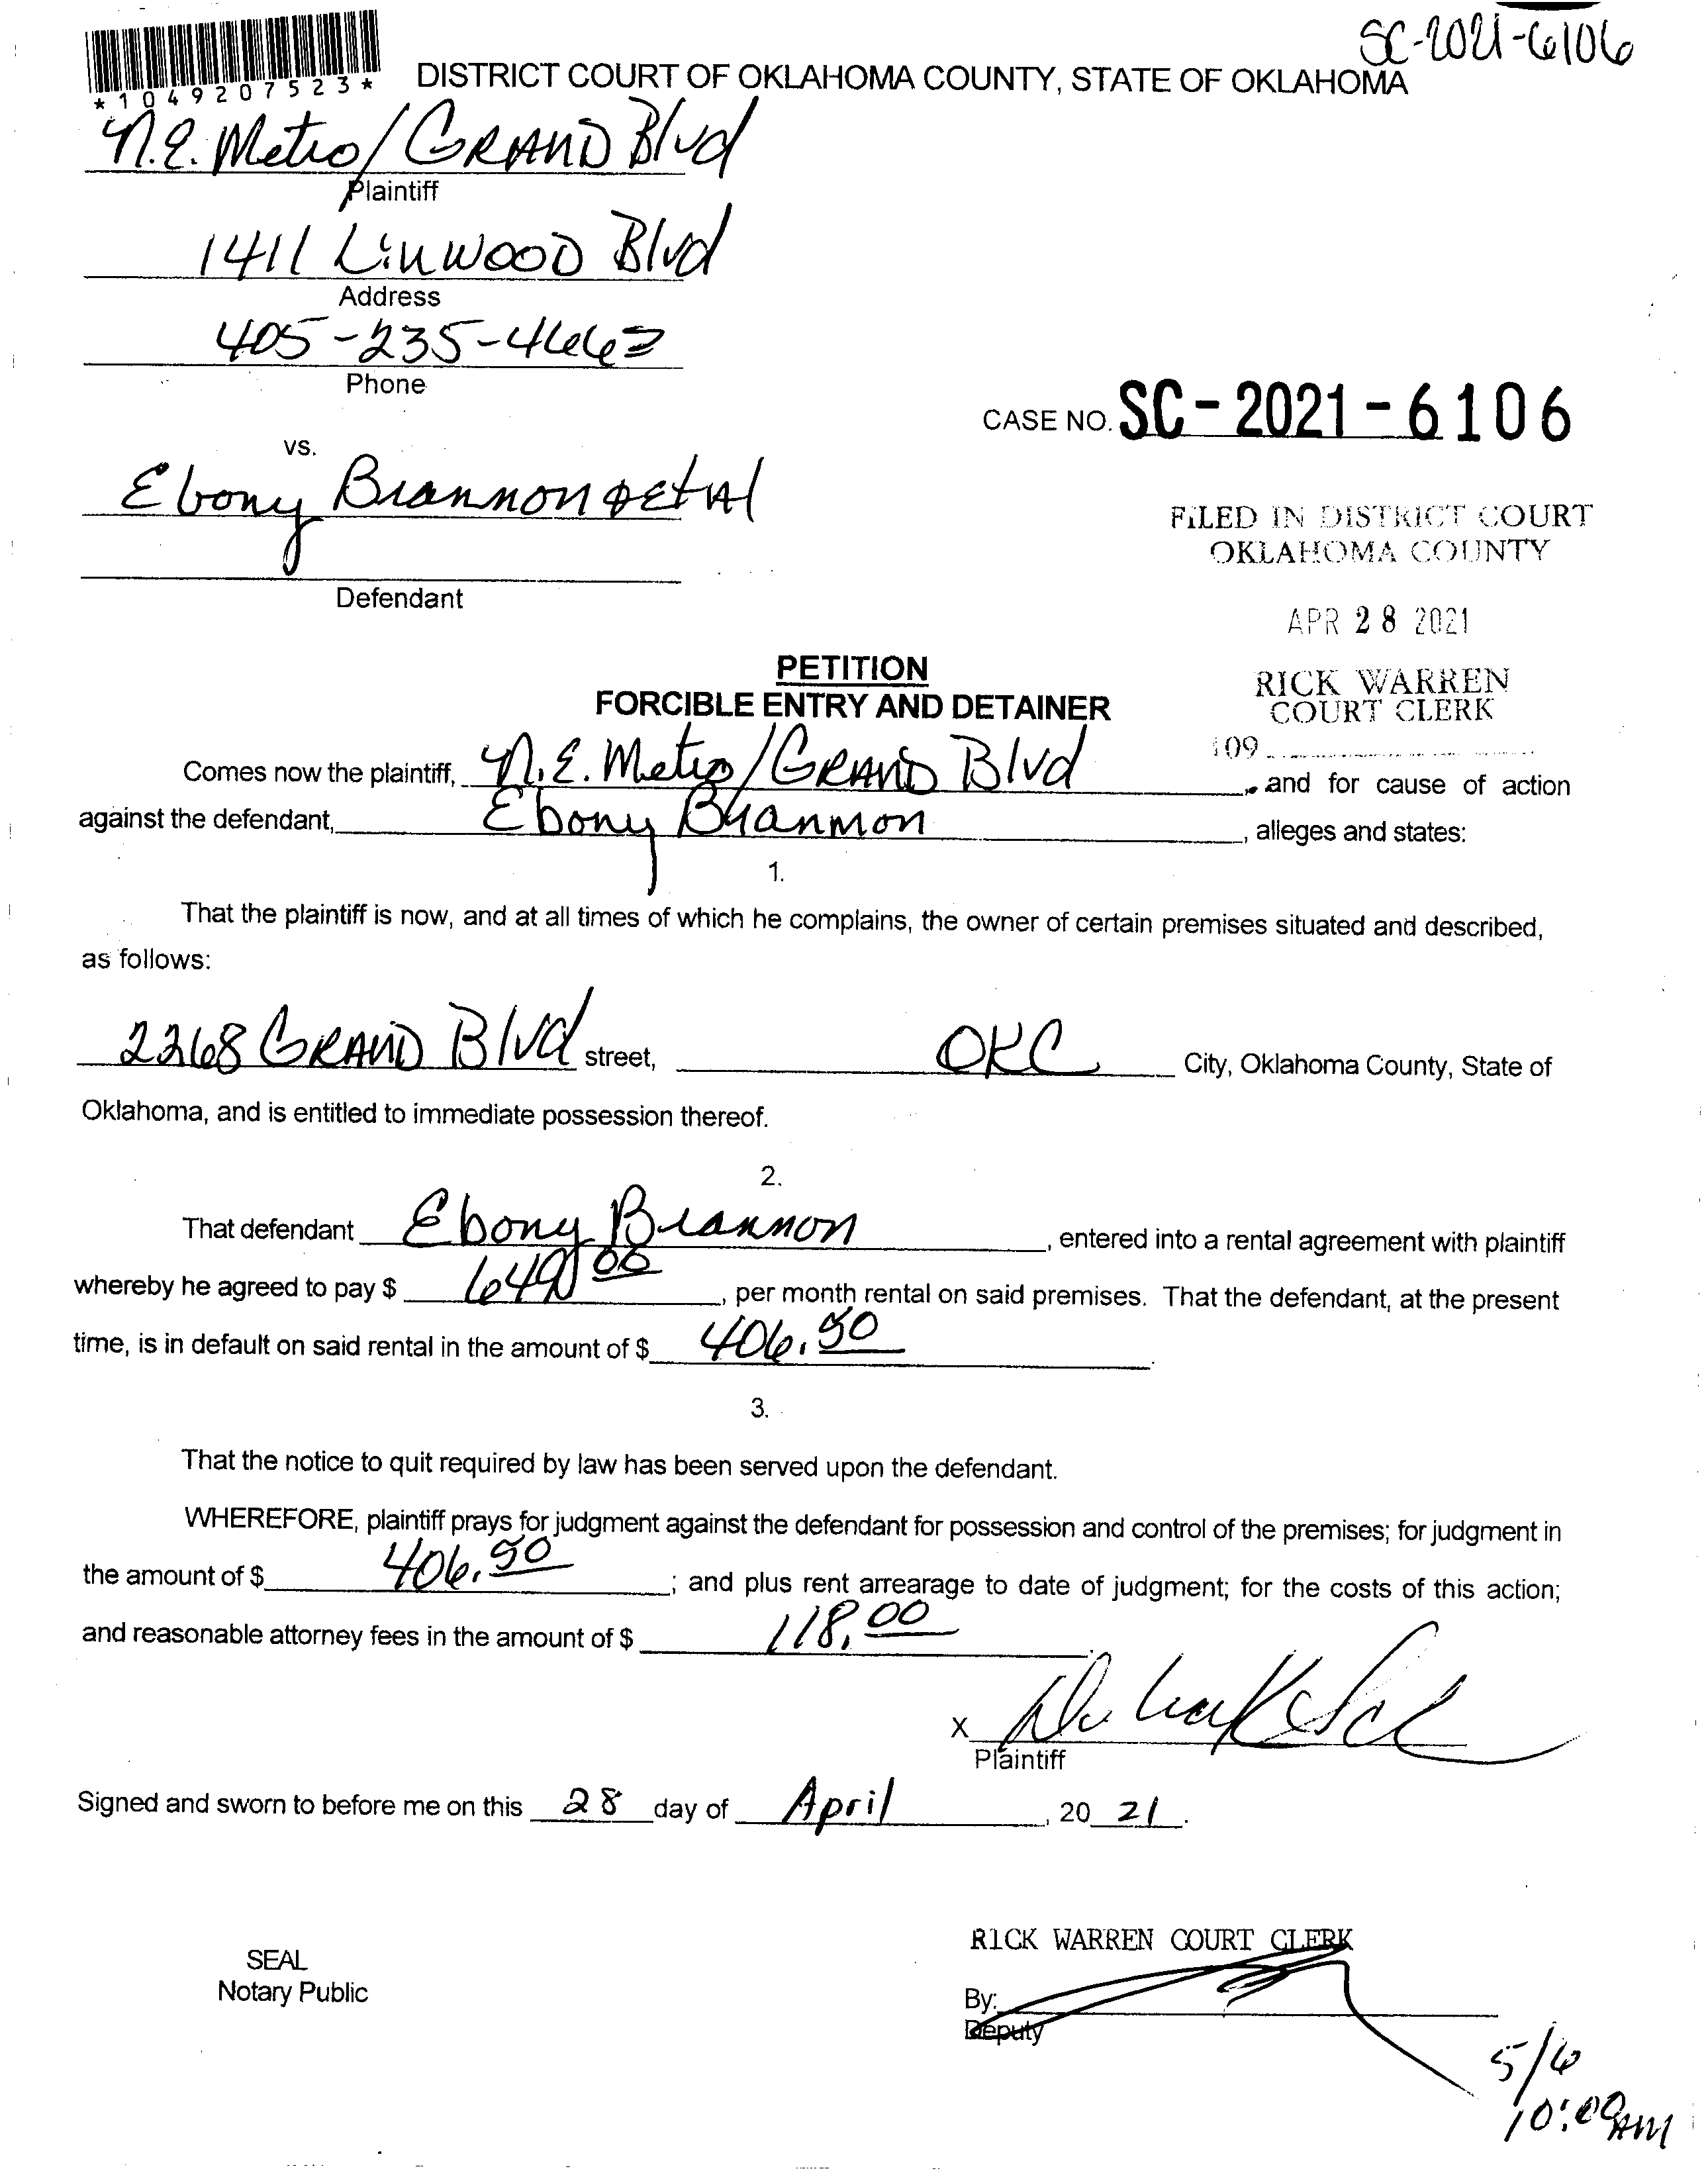 SC-2021-6106
*1049207523*
DISTRICT COURT OF OKLAHOMA COUNTY, STATE OF OKLAHOMA
N.E. Metro/GRAND Blvd
Plaintiff
1411 LinWOOD Blvd
Address
405-235-4663
Phone
CASE NO. SC-2021-6106
vs.
Ebony Brannon et Al
FILED IN DISTRICT COURT
OKLAHOMA COUNTY
Defendant
APR 28 2021
PETITION
FORCIBLE ENTRY AND DETAINER
RICK WARREN
COURT CLERK
109
Comes now the plaintiff, N.E. Metro/GRAND Blvd, and for cause of action
against the defendant, Ebony Brannon, alleges and states:
1.
That the plaintiff is now, and at all times of which he complains, the owner of certain premises situated and described,
as follows:
2268 GRAND Blvd street, OKC City, Oklahoma County, State of
Oklahoma, and is entitled to immediate possession thereof.
2.
That defendant Ebony Brannon, entered into a rental agreement with plaintiff
whereby he agreed to pay $ 649.00, per month rental on said premises. That the defendant, at the present
time, is in default on said rental in the amount of $ 406.50.
3.
That the notice to quit required by law has been served upon the defendant.
WHEREFORE, plaintiff prays for judgment against the defendant for possession and control of the premises; for judgment in
the amount of $ 406.50; and plus rent arrearage to date of judgment; for the costs of this action;
and reasonable attorney fees in the amount of $ 118.00.
X
Plaintiff
Signed and sworn to before me on this 28 day of April, 20 21.
RICK WARREN COURT CLERK
SEAL
Notary Public
By:
Deputy
5/6
10:00AM